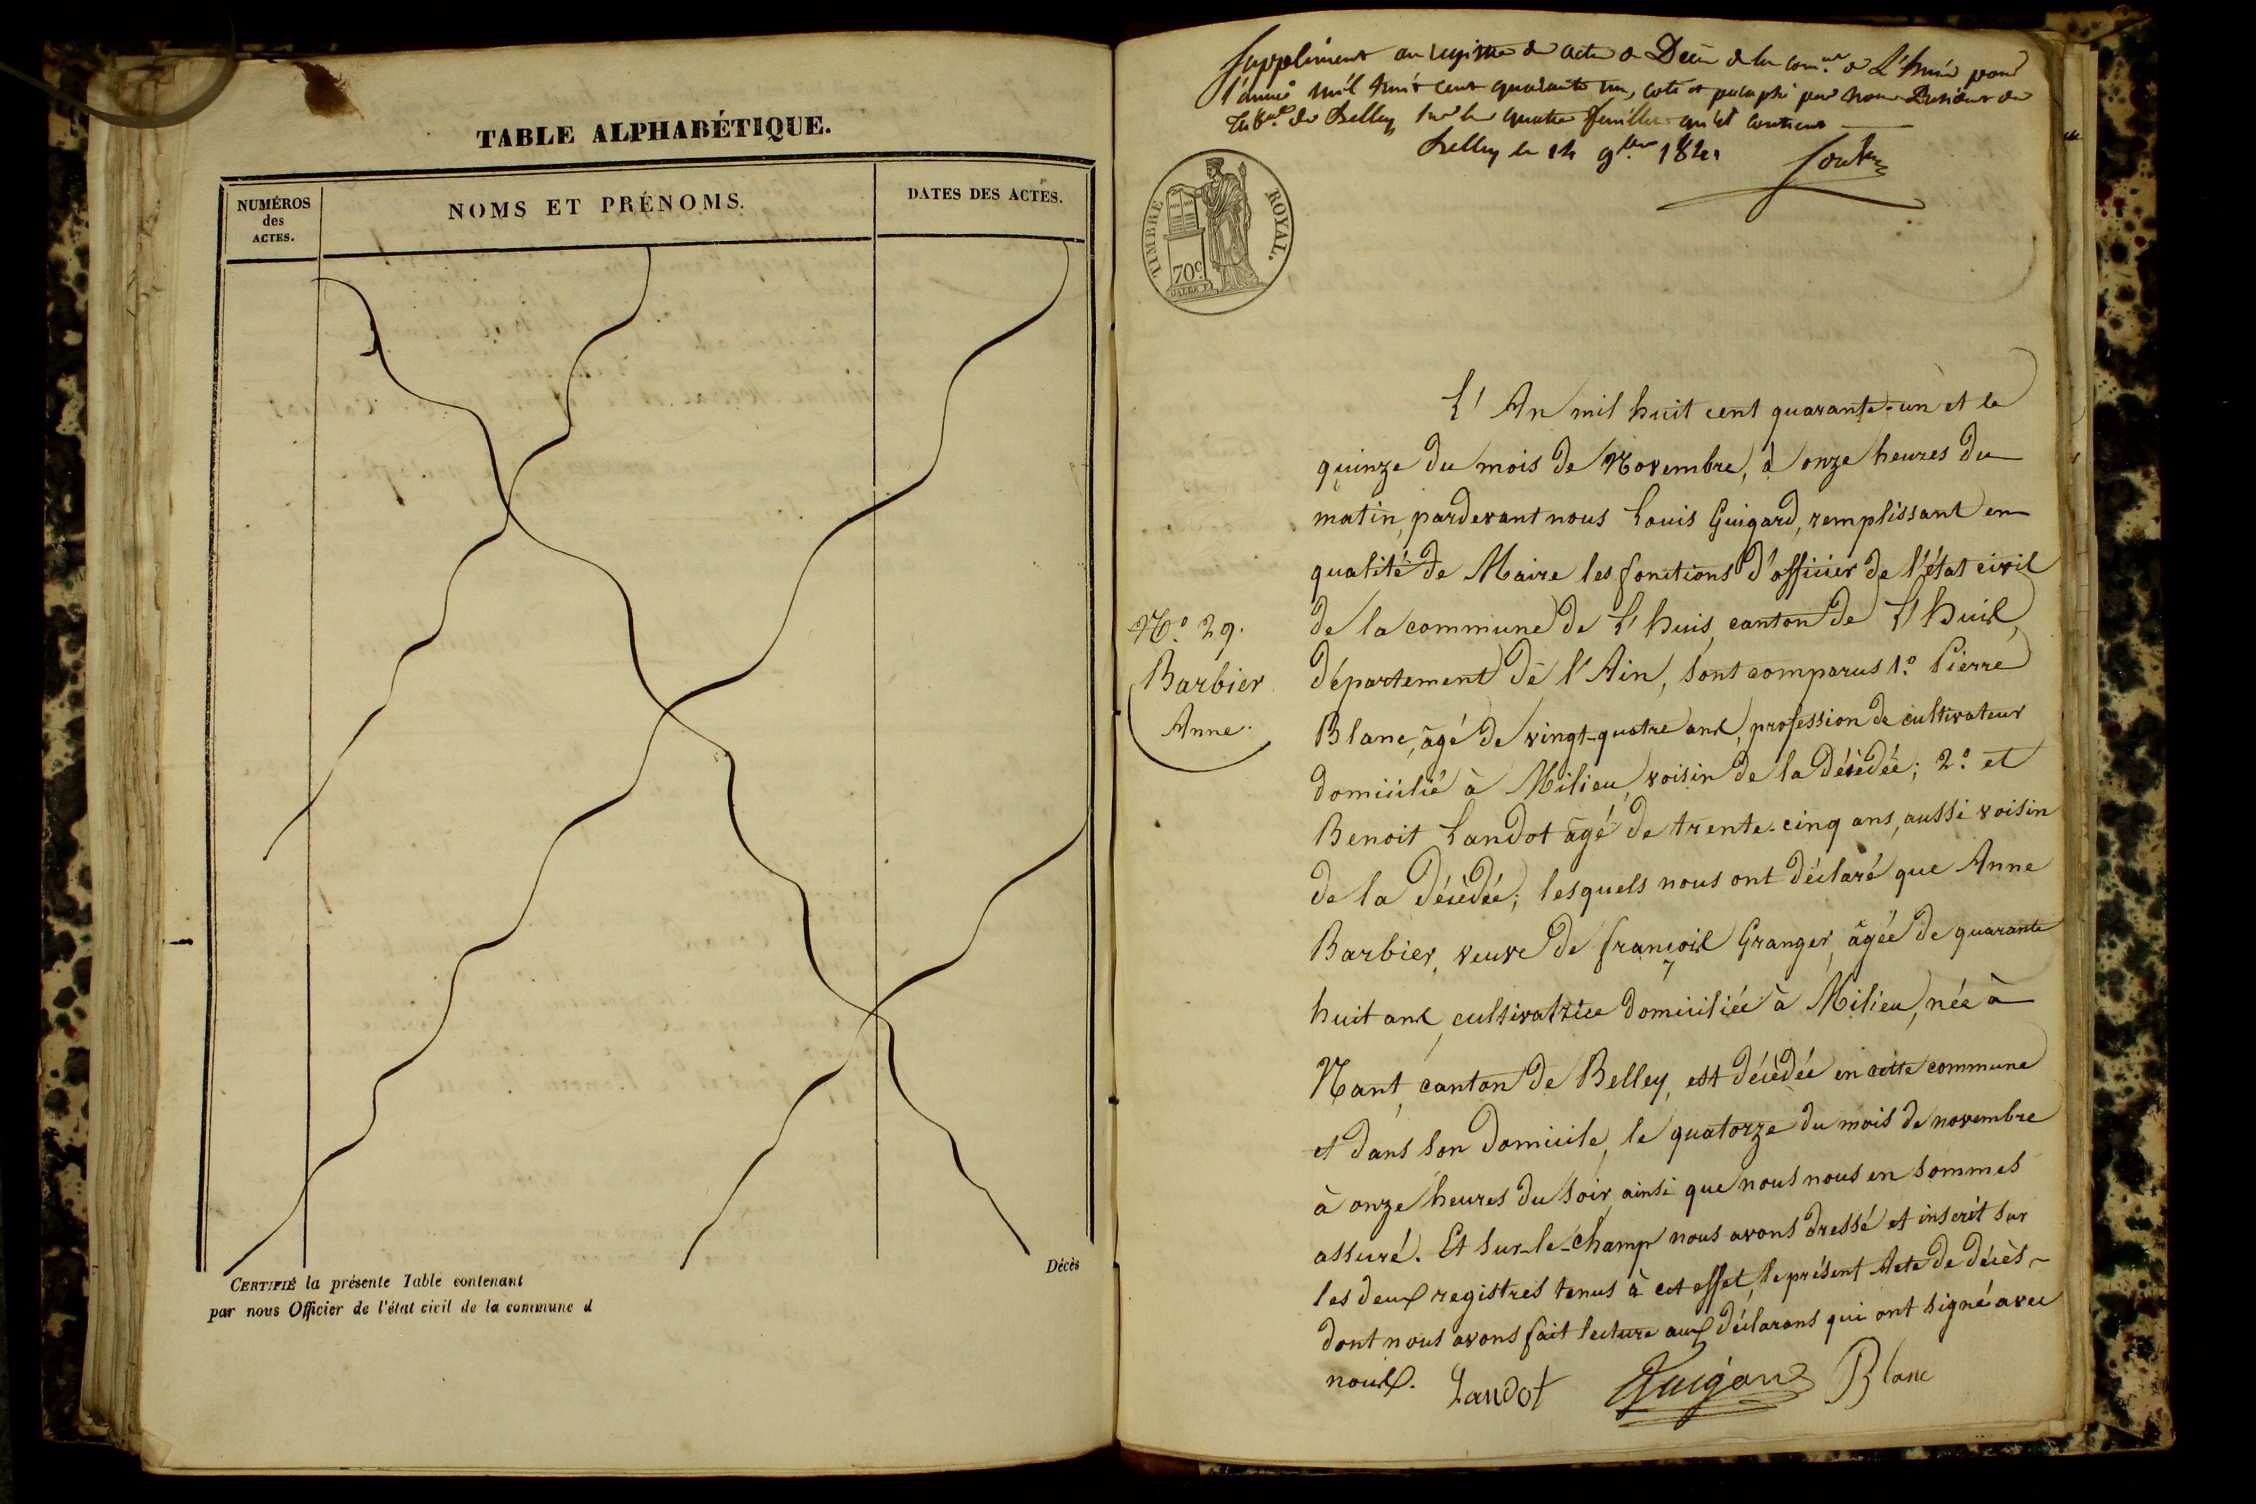 TABLE ALPHABÉTIQUE.
NUMÉROS
des
ACTES.
NOMS ET PRÉNOMS.
DATES DES ACTES.
Décès
CERTIFIÉ la présente Table contenant
par nous Officier de l'état civil de la commune d
Supplément au registre de actes de Décès de la com.ne de L'huis pour
l'année mil huit cent quarante un, coté et paraphé par nous Président du
Trib.al de Belley sur les quatre feuillets qu'il contient
Belley le 14 9bre 1841
TIMBRE ROYAL.
70c
L'An mil huit cent quarante-un et le
quinze du mois de Novembre, à onze heures du
matin, pardevant nous Louis Guigard, remplissant en
qualité de Maire les fonctions d'officier de l'état civil
de la commune de L'huis, canton de L'huis,
N.o 29.
Barbier
Anne.
département de l'Ain, sont comparus 1.o Pierre
Blanc, âgé de vingt-quatre ans, profession de cultivateur
domicilié à Milieu, voisin de la décédée; 2.o et
Benoit Landot âgé de trente-cinq ans, aussi voisin
de la décédée; lesquels nous ont déclaré que Anne
Barbier, veuve de françois Granger, âgée de quarante
huit ans, cultivatrice domiciliée à Milieu, née à
Nant, canton de Belley, est décédée en cette commune
et dans son domicile, le quatorze du mois de novembre
à onze heures du soir, ainsi que nous nous en sommes
assuré. Et sur-le-champ nous avons dressé et inscrit sur
les deux registres tenus à cet effet, le présent Acte de décès
dont nous avons fait lecture aux déclarans qui ont signé avec
nous.
Landot Guigard Blanc